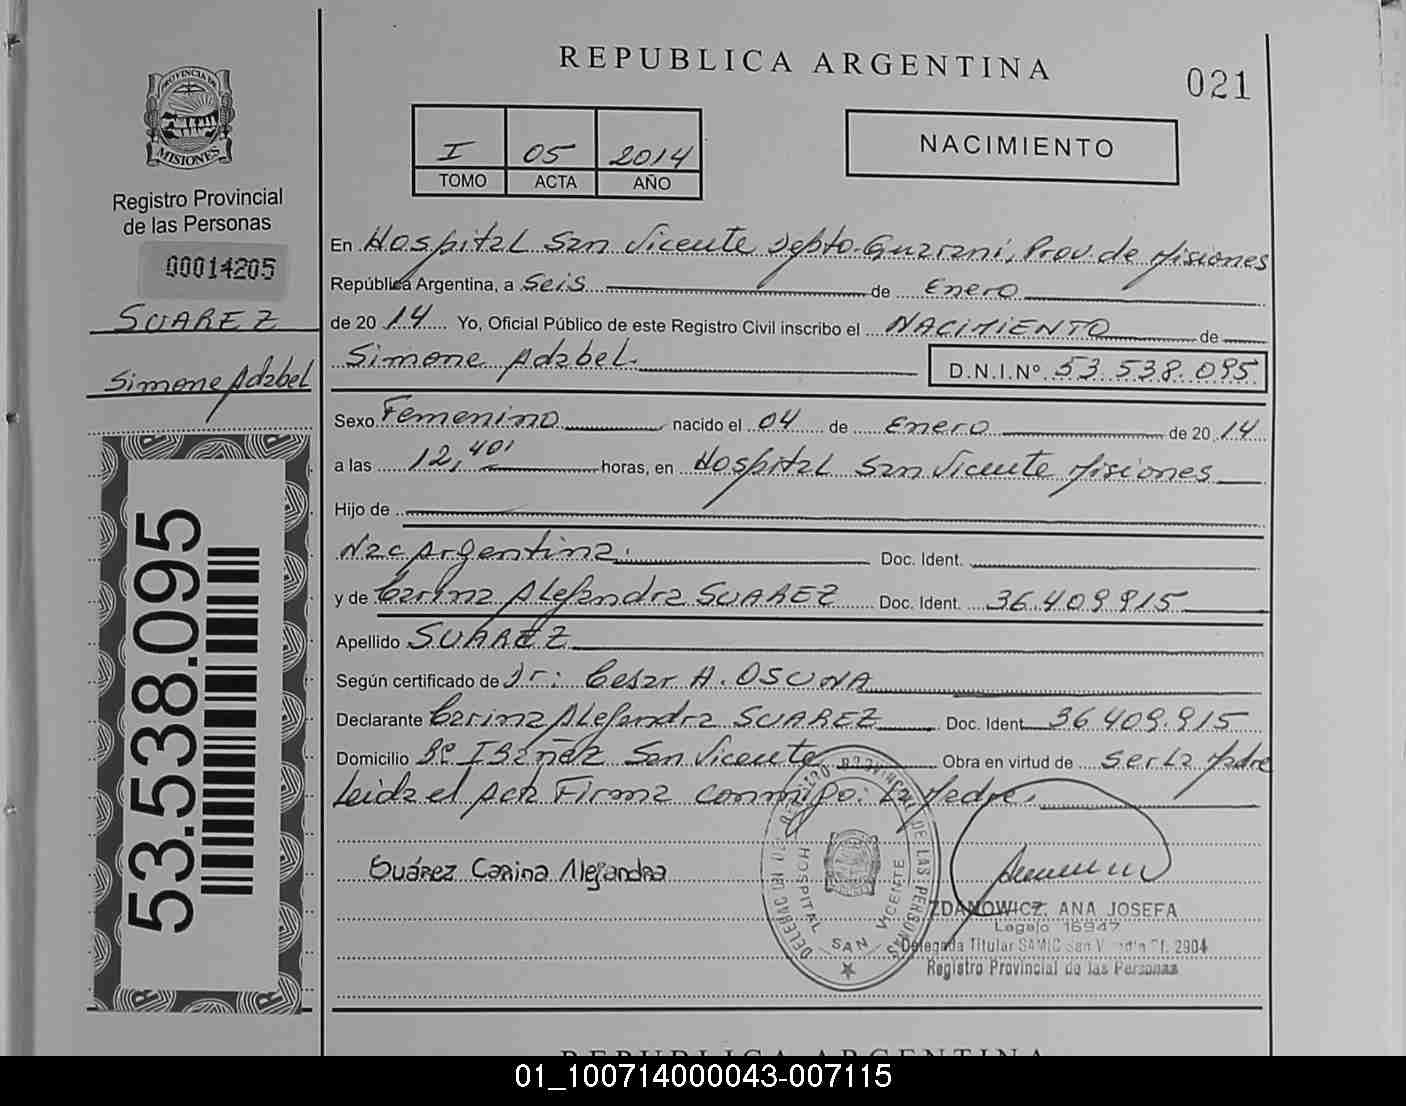 REPUBLICA ARGENTINA
021
PROVINCIA DE
MISIONES
Registro Provincial
de las Personas
00014205
SUAREZ
Simone Adabel
53.538.095
I 05 2014
TOMO ACTA AÑO
NACIMIENTO
En Hospital San Vicente Depto. Guarani, Prov. de Misiones
República Argentina, a Seis de Enero
de 2014 Yo, Oficial Público de este Registro Civil inscribo el NACIMIENTO de
Simone Adabel. D.N.I.Nº 53.538.095
Sexo Femenino nacido el 04 de Enero de 2014
a las 12,40' horas, en Hospital San Vicente Misiones
Hijo de
Nac Argentina. Doc. Ident.
y de Carina Alejandra SUAREZ Doc. Ident. 36.409.915
Apellido SUAREZ
Según certificado de Dr: Cesar A. OSUNA
Declarante Carina Alejandra SUAREZ Doc. Ident. 36.409.915
Domicilio Bº Ibañez San Vicente Obra en virtud de ser La Madre
Leida el Acta Firma conmigo: La Madre.
Suárez Carina Alejandra
HOSPITAL SAN VICENTE
DE LAS PERSONAS
ZDANOWICZ, ANA JOSEFA
Legajo 16947
Delegada Titular SAMIC San 2904
Registro Provincial de las Personas
REPUBLICA ARGENTINA
01_100714000043-007115